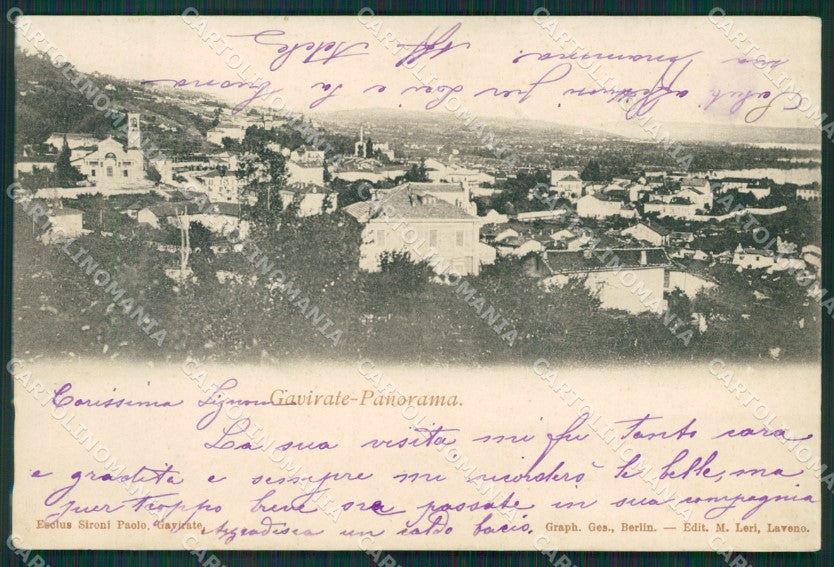 Gavirate-Panorama.
Carissima Signora
La sua visita mi fu tanto cara
e gradita e sempre mi ricorderò le belle, ma
pur troppo breve ore passate in sua compagnia
Aggradisca un caldo bacio.
Esclus Sironi Paolo, Gavirate.
Graph. Ges., Berlin. — Edit. M. Leri, Laveno.
Saluti affettuosi per Loci e la buona
sua mamma. Aff. Adele
CARTOLINOMANIA